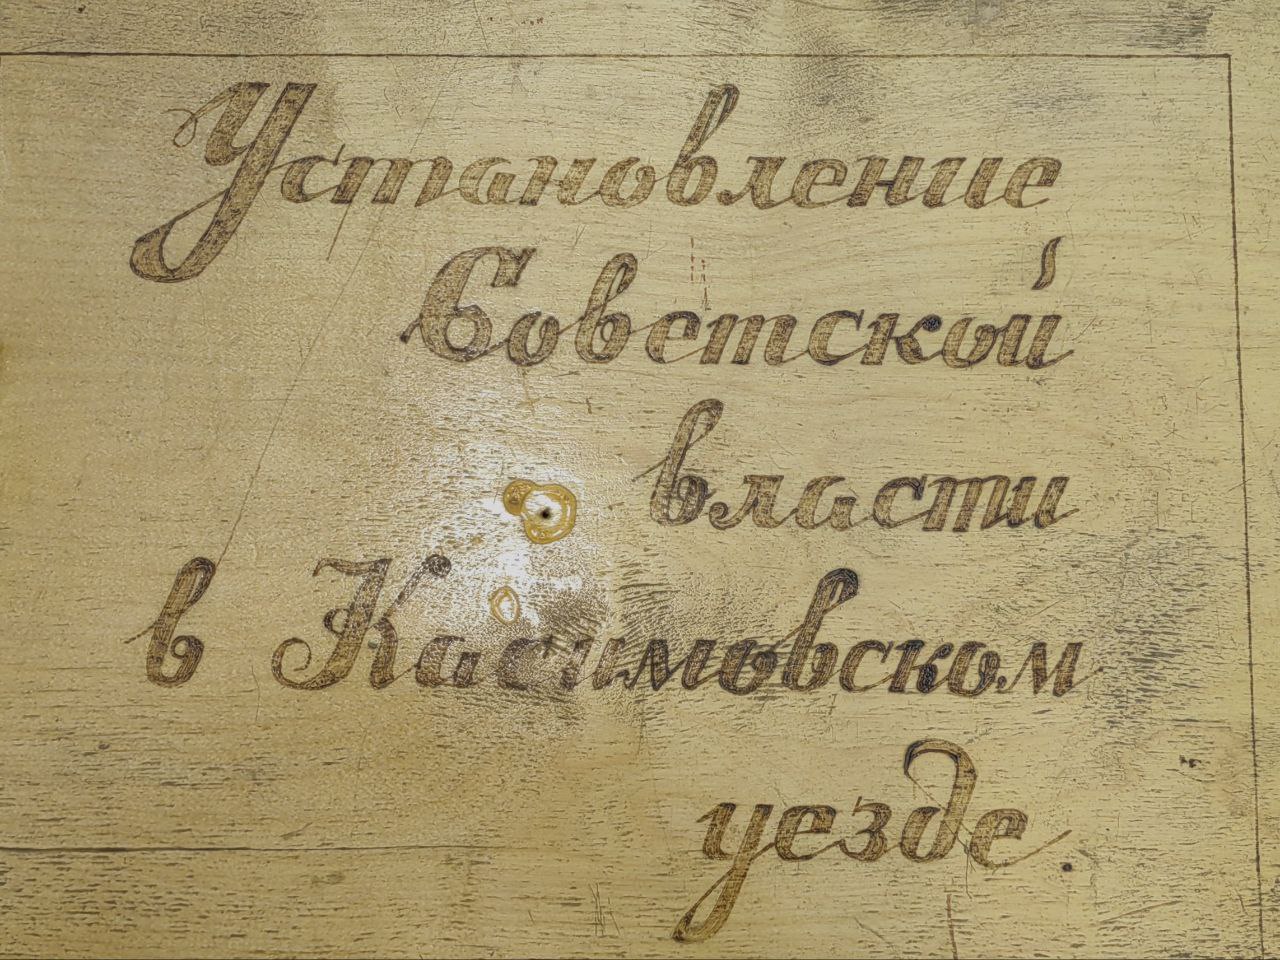 Установление
Советской
власти
в Касимовском
уезде.